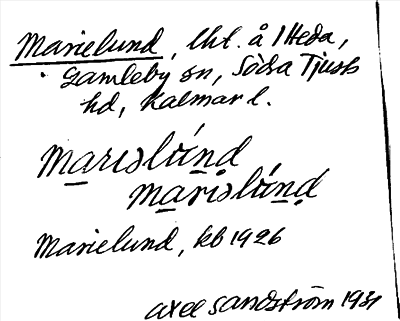 Marielund, lht. å 1 Heda,
Gamleby sn, Södra Tjusts
hd, Kalmar l.
marıslúnd
marıslúnd
Marielund, kb 1926
Axel Sandström 1931